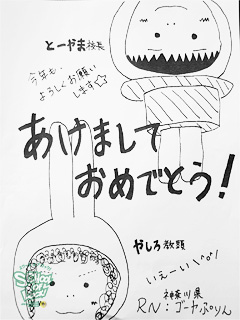 とーやま校長
今年も、
よろしくお願い
します☆
あけまして
おめでとう!
やしろ教頭
いぇーい\(^o^)/
神奈川県
RN:ゴーヤぷりん